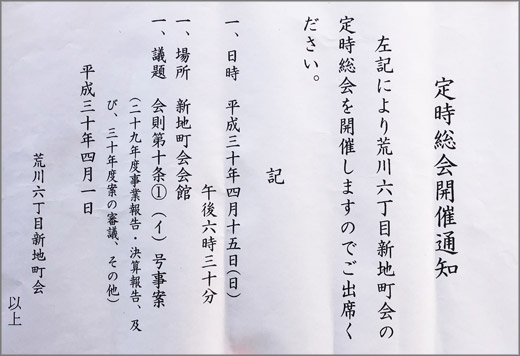 定時総会開催通知
左記により荒川六丁目新地町会の
定時総会を開催しますのでご出席く
ださい。
記
一、日時　平成三十年四月十五日(日)
午後六時三十分
一、場所　新地町会会館
一、議題　会則第十条①(イ)号事案
(二十九年度事業報告・決算報告、及
び、三十年度案の審議、その他)
平成三十年四月一日
荒川六丁目新地町会
以上